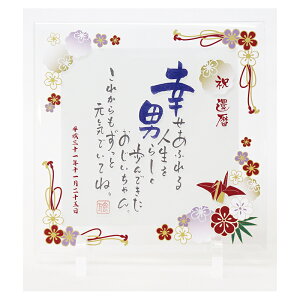 祝還暦
幸せあふれる
人生を
男らしく
歩んできた
おじいちゃん。
これからもずっと
元気でいてね。
平成三十一年一月二十五日